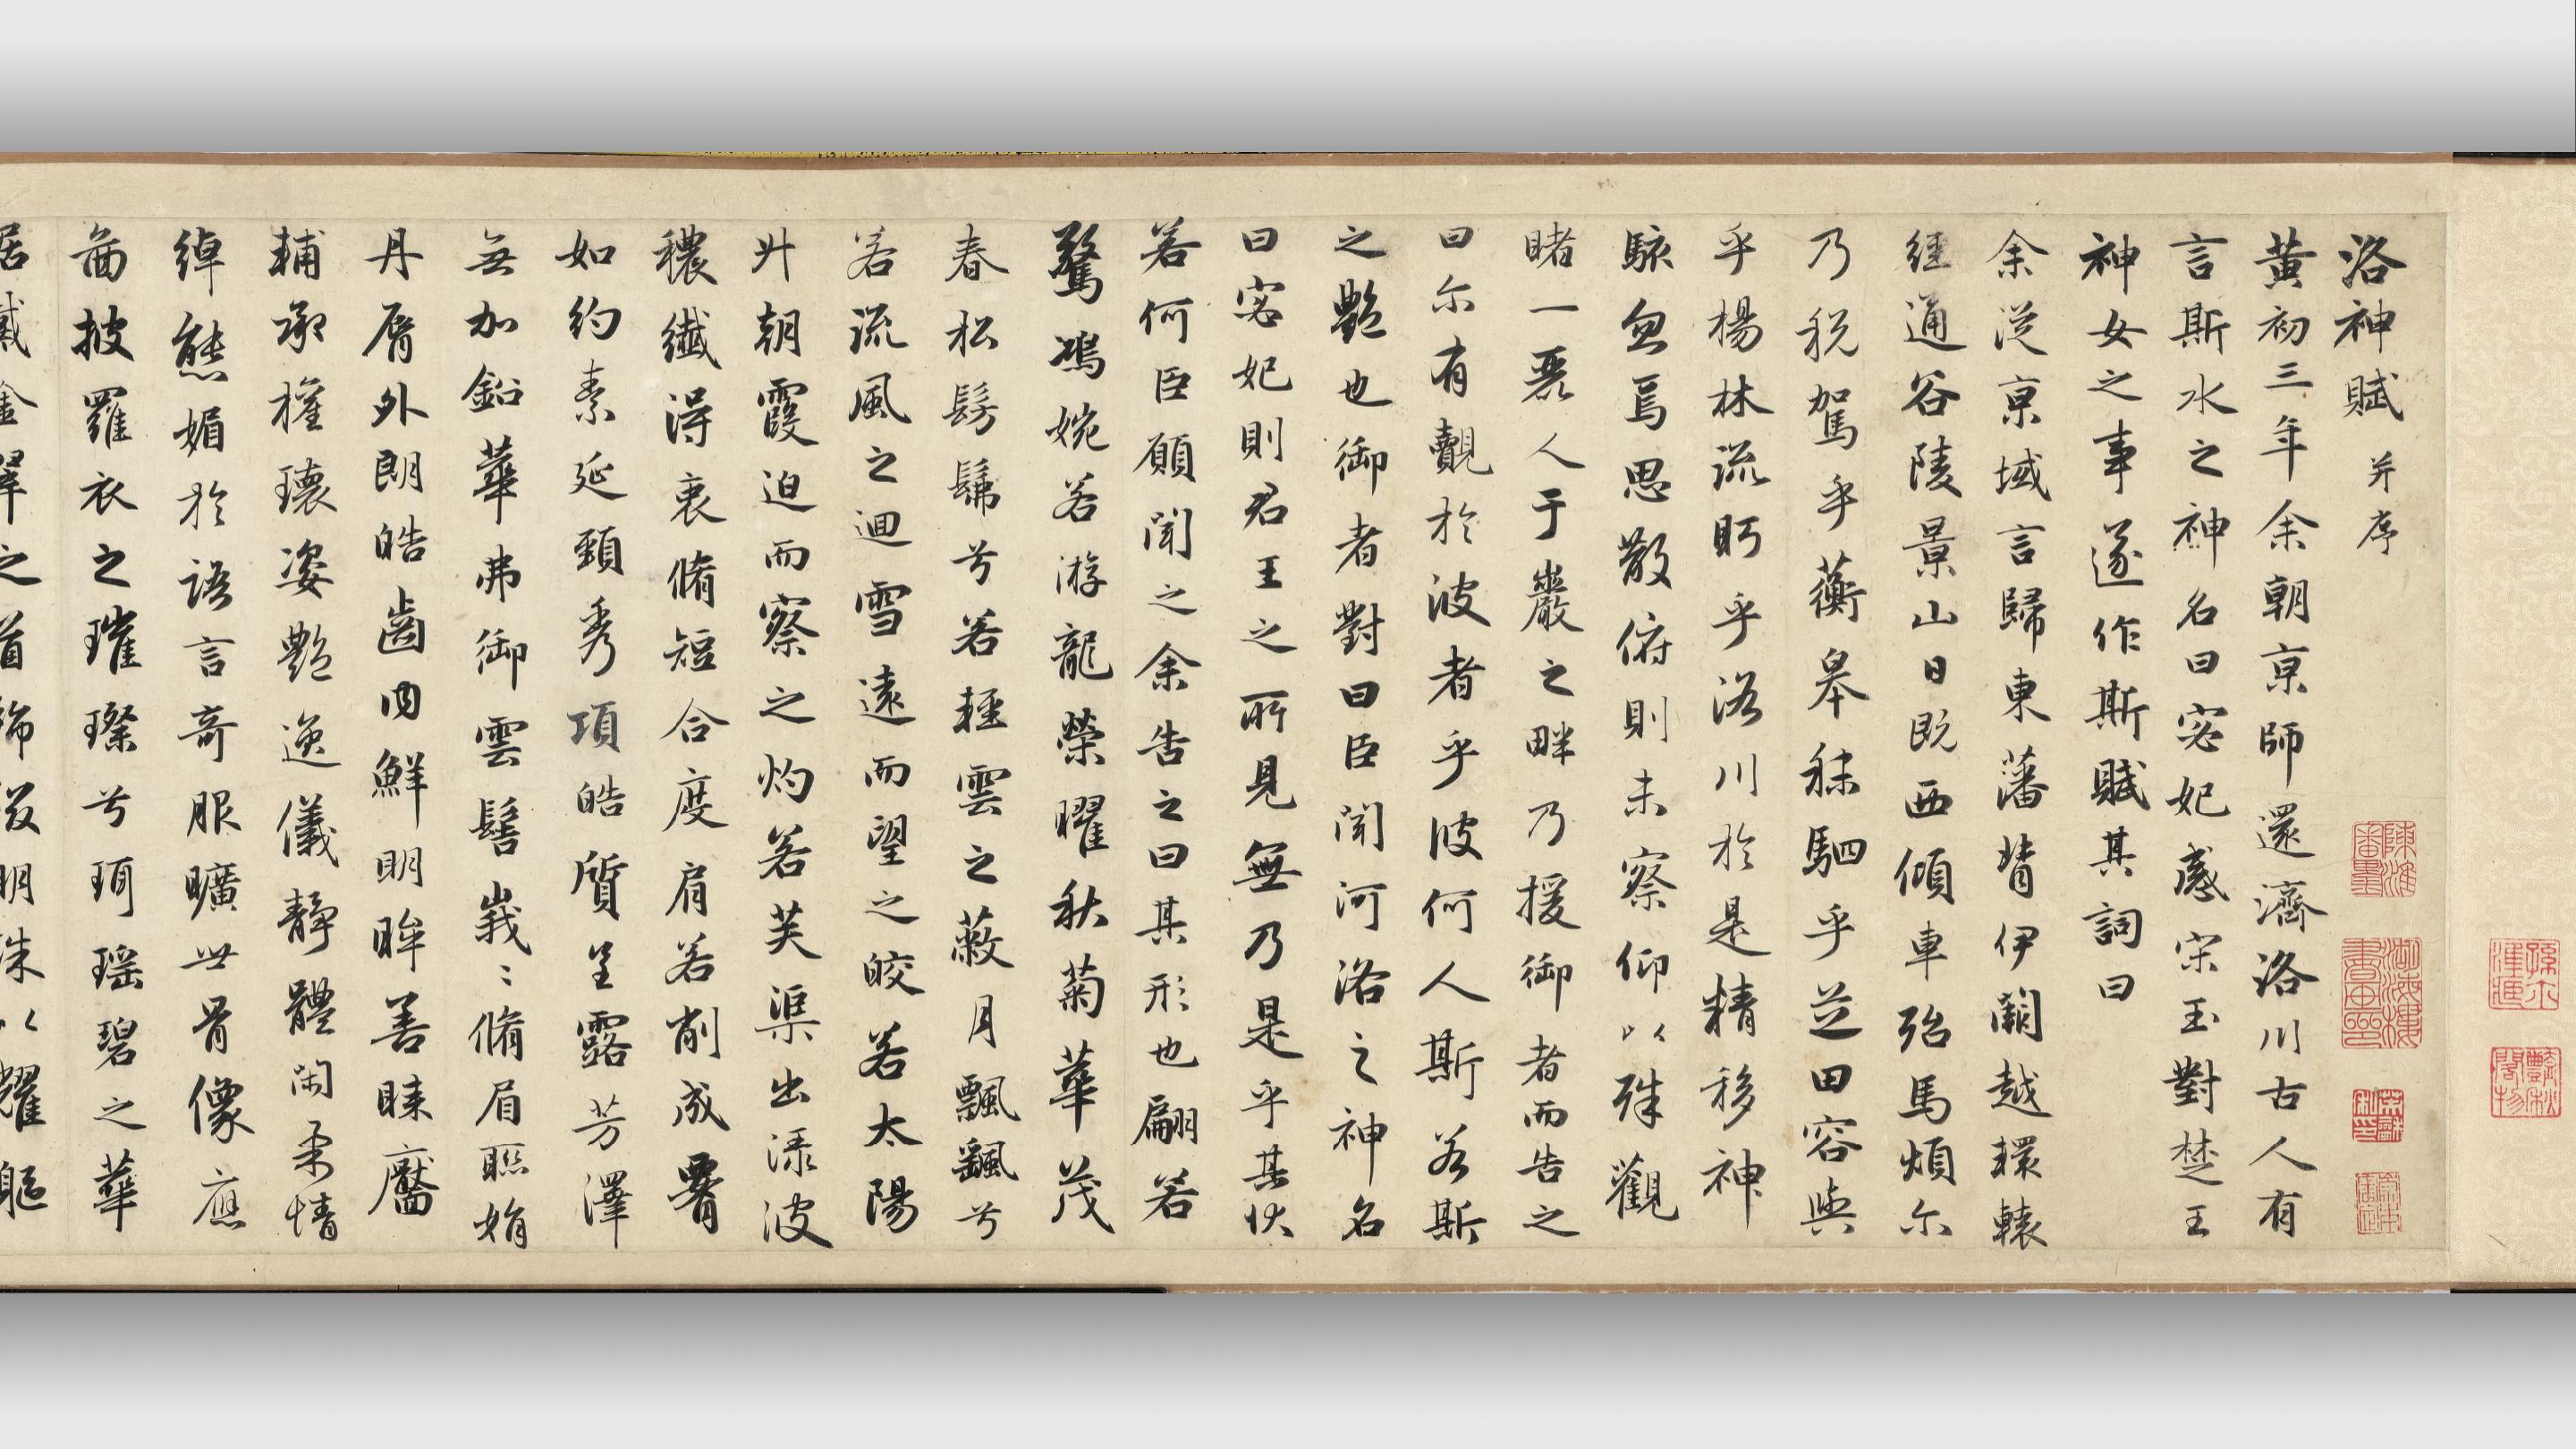 洛神賦并序
黃初三年余朝京師還濟洛川古人有
言斯水之神名曰宓妃感宋玉對楚王
神女之事遂作斯賦其詞曰
余從京域言歸東藩背伊闕越轘轅
經通谷陵景山日既西傾車殆馬煩尒
乃稅駕乎蘅皋秣駟乎芝田容與
乎楊林流眄乎洛川於是精移神
駭忽焉思散俯則未察仰以殊觀
睹一麗人于巖之畔乃援御者而告之
曰尒有覿於波者乎彼何人斯若斯
之艷也御者對曰臣聞河洛之神名
曰宓妃則君王之所見無乃是乎其狀
若何臣願聞之余告之曰其形也翩若
驚鴻婉若游龍榮曜秋菊華茂
春松髣髴兮若輕雲之蔽月飄颻兮
若流風之迴雪遠而望之皎若太陽
升朝霞迫而察之灼若芙蕖出淥波
穠纖得衷脩短合度肩若削成𦝫
如約素延頸秀項皓質呈露芳澤
無加鉛華弗御雲髻峩〻脩眉聮娟
丹脣外朗皓齒內鮮明眸善睞靨
輔承權瓌姿艷逸儀靜體閑柔情
綽態媚於語言奇服曠世骨像應
啚披羅衣之璀璨兮珥瑤碧之華
戴金翠之首飾綴明珠以耀軀